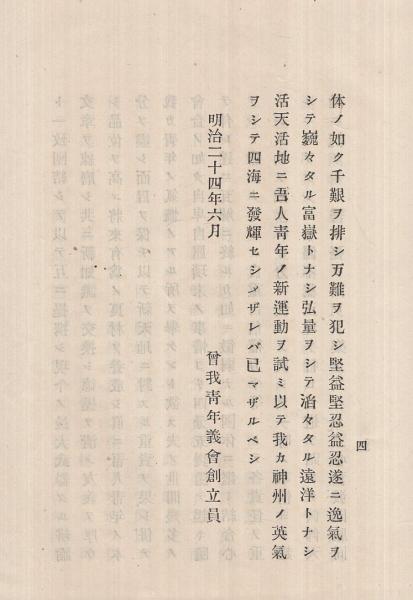 四
体ノ如ク千艱ヲ排シ万難ヲ犯シ堅益堅忍益忍遂ニ逸氣ヲ
シテ巍々タル富嶽トナシ弘量ヲシテ滔々タル遠洋トナシ
活天活地ニ吾人靑年ノ新運動ヲ試ミ以テ我カ神州ノ英氣
ヲシテ四海ニ發輝セシメザレバ已マザルベシ
明治二十四年六月
曾我靑年義會創立員